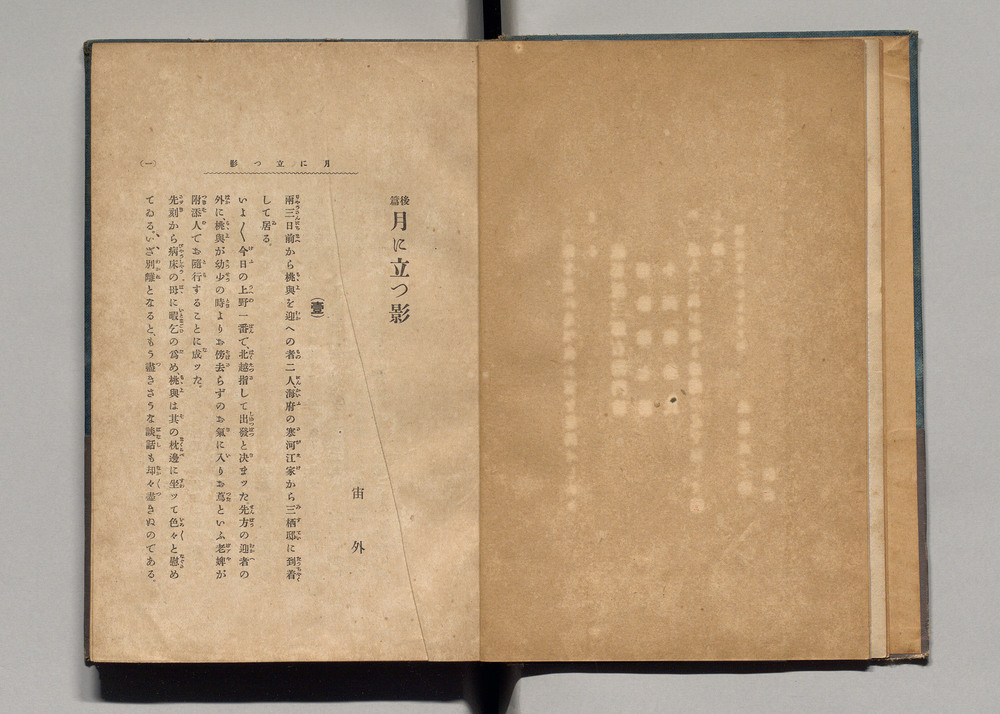 月に立つ影
(一)
後篇 月に立つ影
宙外
(壹)
兩三日前から桃與を迎への者二人、海府の寒河江家から三栖邸に到着
して居る。
いよ〳〵今日の上野一番で、北越指して出發と决まッた先方の迎者の
外に、桃與が幼少の時よりお傍去らずのお氣に入りお蔦といふ老婢が
附添人でお隨行することに成ッた。
先刻から病床の母に暇乞の爲め、桃與は其の枕邊に坐ッて色々と慰め
てゐる。いざ別離となると、もう盡きさうな談話も却々盡きぬのである。